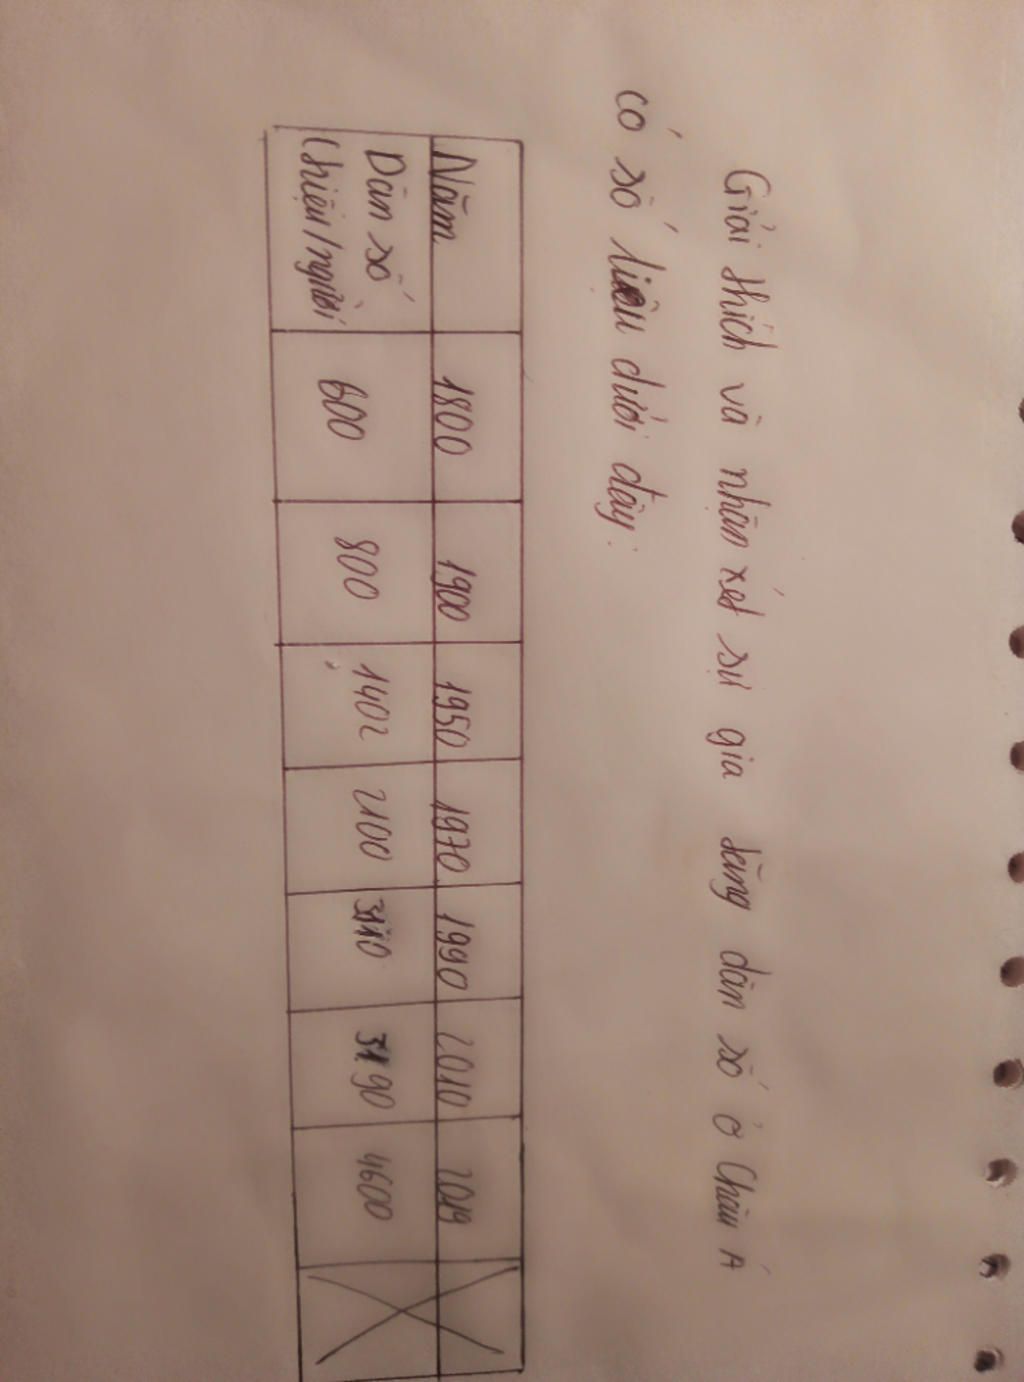 Giải thích và nhận xét sự gia tăng dân số ở Châu Á
có số liệu dưới đây:
Năm 1800 1900 1950 1970 1990 2010 2019
Dân số 600 800 1402 2100 3110 4600
(hiệu/người